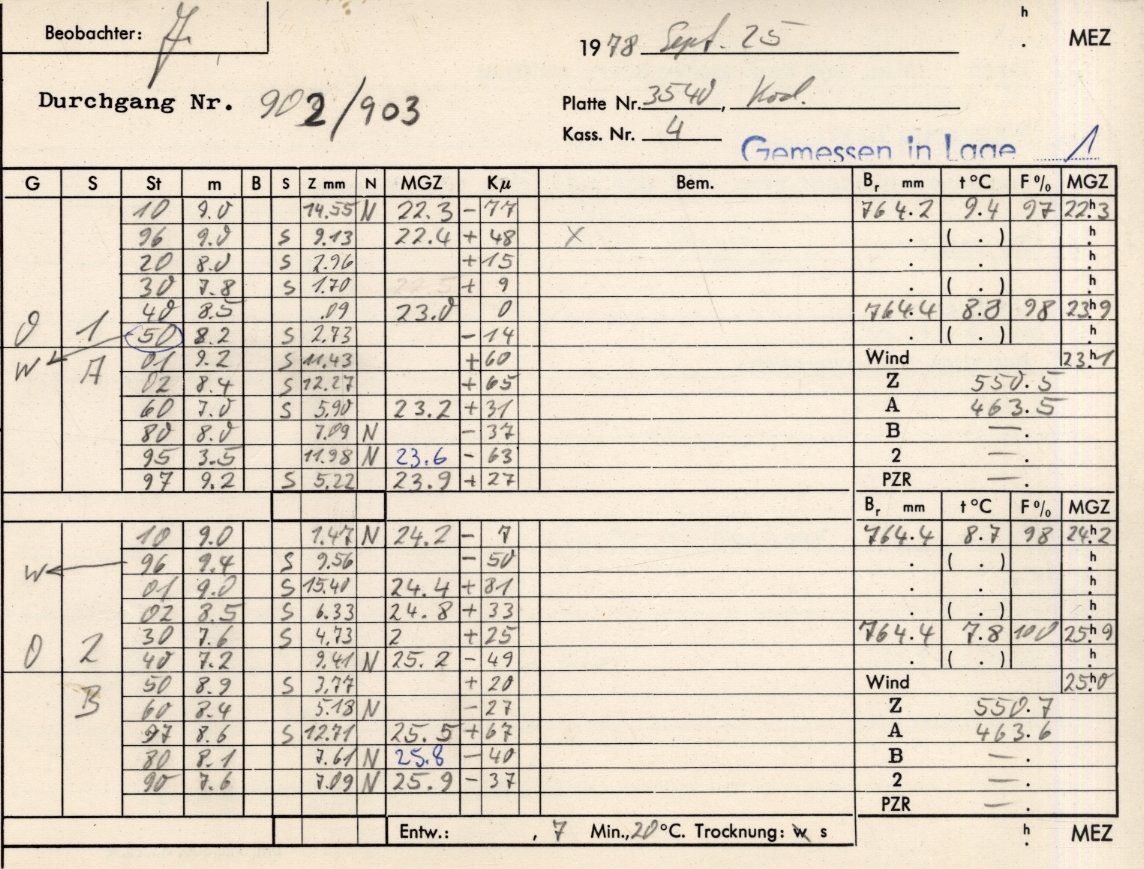 Beobachter: J.
1978 Sept. 25
h . MEZ
Durchgang Nr. 902/903
Platte Nr. 3540, Kod.
Kass. Nr. 4
Gemessen in Lage 1
G S St m B S Z mm N MGZ Kμ Bem. Br mm t°C F% MGZ
10 9.0 14.55 N 22.3 - 77 764.2 9.4 97 22h3
96 9.0 S 9.13 22.4 + 48 x . ( . ) h
20 8.0 S 2.96 +15 . . h
30 7.8 S 1.70 + 9 . ( . ) h
40 8.5 .09 23.0 0 764.4 8.8 98 23h9
0 1 50 8.2 S 2.73 - 14 . ( . ) h
W A 01 9.2 S 11.43 +60 Wind 23h1
02 8.4 S 12.27 +65 Z 550.5
60 7.0 S 5.90 23.2 +31 A 463.5
80 8.0 7.09 N - 37 B — .
95 3.5 11.98 N 23.6 - 63 2 — .
97 9.2 S 5.22 23.9 + 27 PZR — .
Br mm t°C F% MGZ
10 9.0 1.47 N 24.2 - 7 764.4 8.7 98 24h2
W 96 9.4 S 9.56 - 50 . ( . ) h
01 9.0 S 15.40 24.4 +81 . . h
02 8.5 S 6.33 24.8 + 33 . ( . ) h
30 7.6 S 4.73 2 +25 764.4 7.8 100 25h9
0 2 40 7.2 9.41 N 25.2 - 49 . ( . ) h
B 50 8.9 S 3.77 + 20 Wind 25h0
60 8.4 5.18 N - 27 Z 550.7
97 8.6 S 12.71 25.5 +67 A 463.6
80 8.1 7.61 N 25.8 - 40 B — .
90 7.6 7.09 N 25.9 - 37 2 — .
PZR — .
Entw.: , 7 Min., 20 °C. Trocknung: w s
h . MEZ